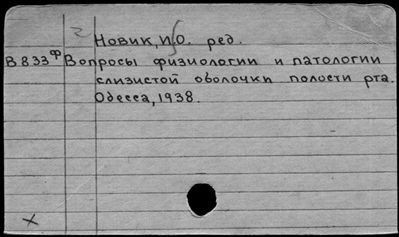 Новик, И.О. ред.
В833ф Вопросы физиологии и патологии
слизистой оболочки полости рта.
Одесса, 1938.
X